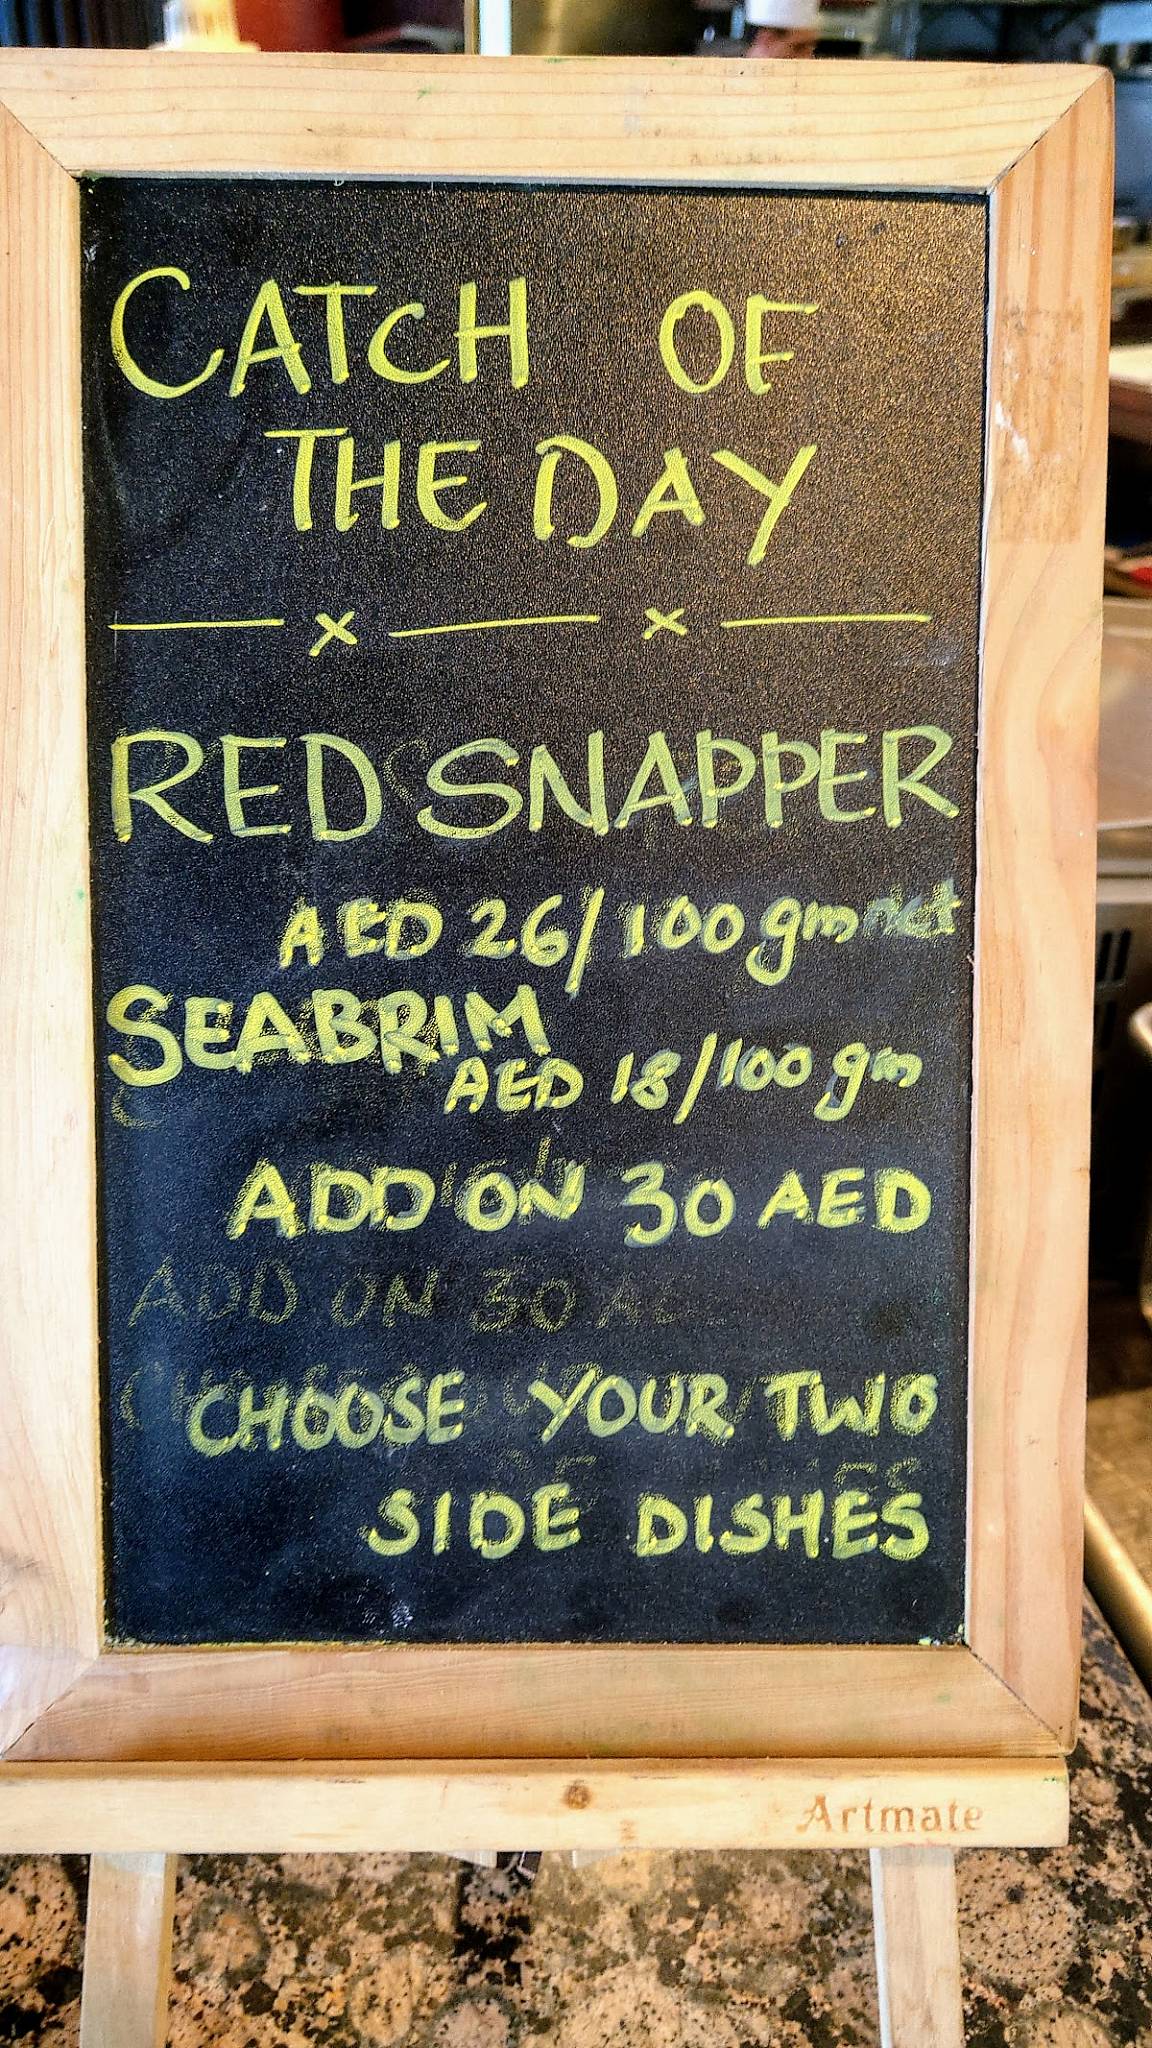 CATCH OF
THE DAY
— x — x —
RED SNAPPER
AED 26/100 gm net
SEABRIM
AED 18/100 gm
ADD ON 30 AED
ADD ON 30
CHOOSE YOUR TWO
SIDE DISHES
Artmate